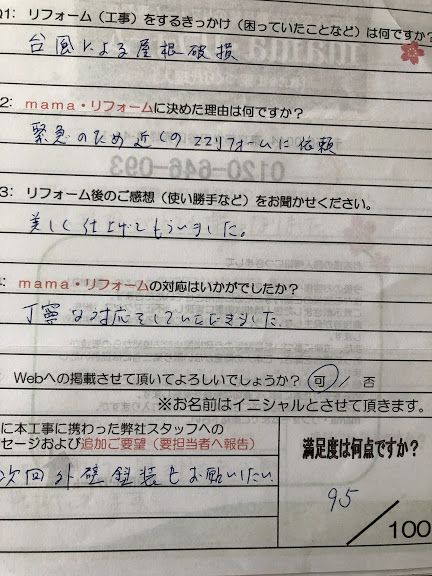 Q1: リフォーム（工事）をするきっかけ（困っていたことなど）は何ですか?
台風による屋根破損
2: mama・リフォームに決めた理由は何ですか?
緊急のため近くのママリフォームに依頼
0120-646-093
3: リフォーム後のご感想（使い勝手など）をお聞かせください。
美しく仕上げてもらいました。
: mama・リフォームの対応はいかがでしたか?
丁寧な対応をしていただきました。
Webへの掲載させて頂いてよろしいでしょうか? 可 / 否
※お名前はイニシャルとさせて頂きます。
に本工事に携わった弊社スタッフへの
セージおよび追加ご要望（要担当者へ報告）
次回外壁塗装もお願いしたい
満足度は何点ですか?
95
/100